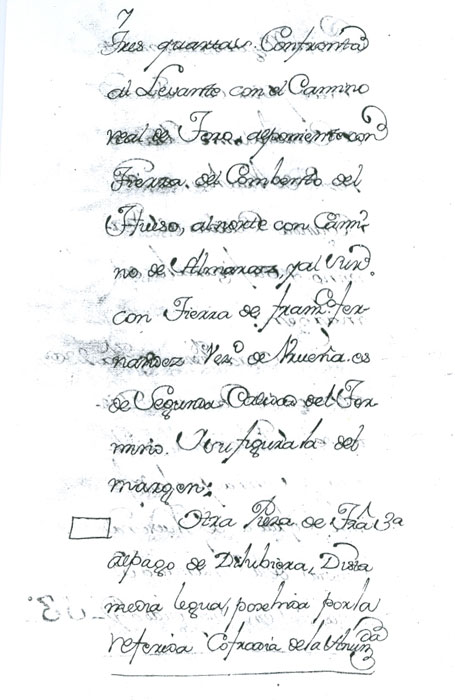 7
Tres quartas. Confronta
al Levante con el Camino
real de Toro, al poniente con
Tierra del Combento del
Hueso, al norte con Cami-
no de Almaraz, y al Sur
con Tierra de Franco fer-
nandez Vezo de Brueña. es
de Segunda Calidad del Ter-
mino. Y su figura la del
margen:
Otra Pieza de Trra
al pago de Dista
media legua, posehida por la
referida Cofradia de la